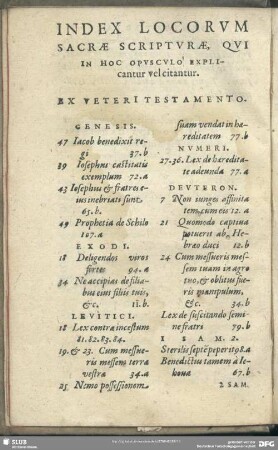 INDEX LOCORVM
SACRÆ SCRIPTVRÆ, QVI
IN HOC OPVSCVLO EXPLI-
cantur vel citantur.
EX VETERI TESTAMENTO.
GENESIS.
47 Iacob benedixit re-
gi 37.b
39 Iosephus castitatis
exemplum 72.a
43 Iosephus & fratres e-
ius inebriati sunt
65.b.
49 Prophetia de Schilo
107.a
EXODI.
18 Deligendos viros
fortes 94.a
34 Ne accipias de filia-
bus eius filiis tuis,
&c. 11.b.
LEVITICI.
18 Lex contra incestum
81.82.83.84.
19.& 23. Cum messue-
ris messem terræ
vestræ 34.a
25 Nemo possessionem
suam vendat in hæ-
reditatem 77.b
NVMERI.
27.36. Lex de hæredita-
te adeunda 77.a
DEVTERON.
7 Non iunges affinita-
tem cum eis 12.a
21 Quomodo captiua
potuerit ab He-
bræo duci 12.b
24 Cum messueris mes-
sem tuam in agro
tuo, & oblitus fue-
ris manipulum,
&c. 34.b
Lex de suscitando semi-
ne fratri 79.b
I SAM. 2.
Sterilis septē peperit 98.a
Benedictus tamen à Ie-
houa 67.b
2 SAM.
SLUB
DFG